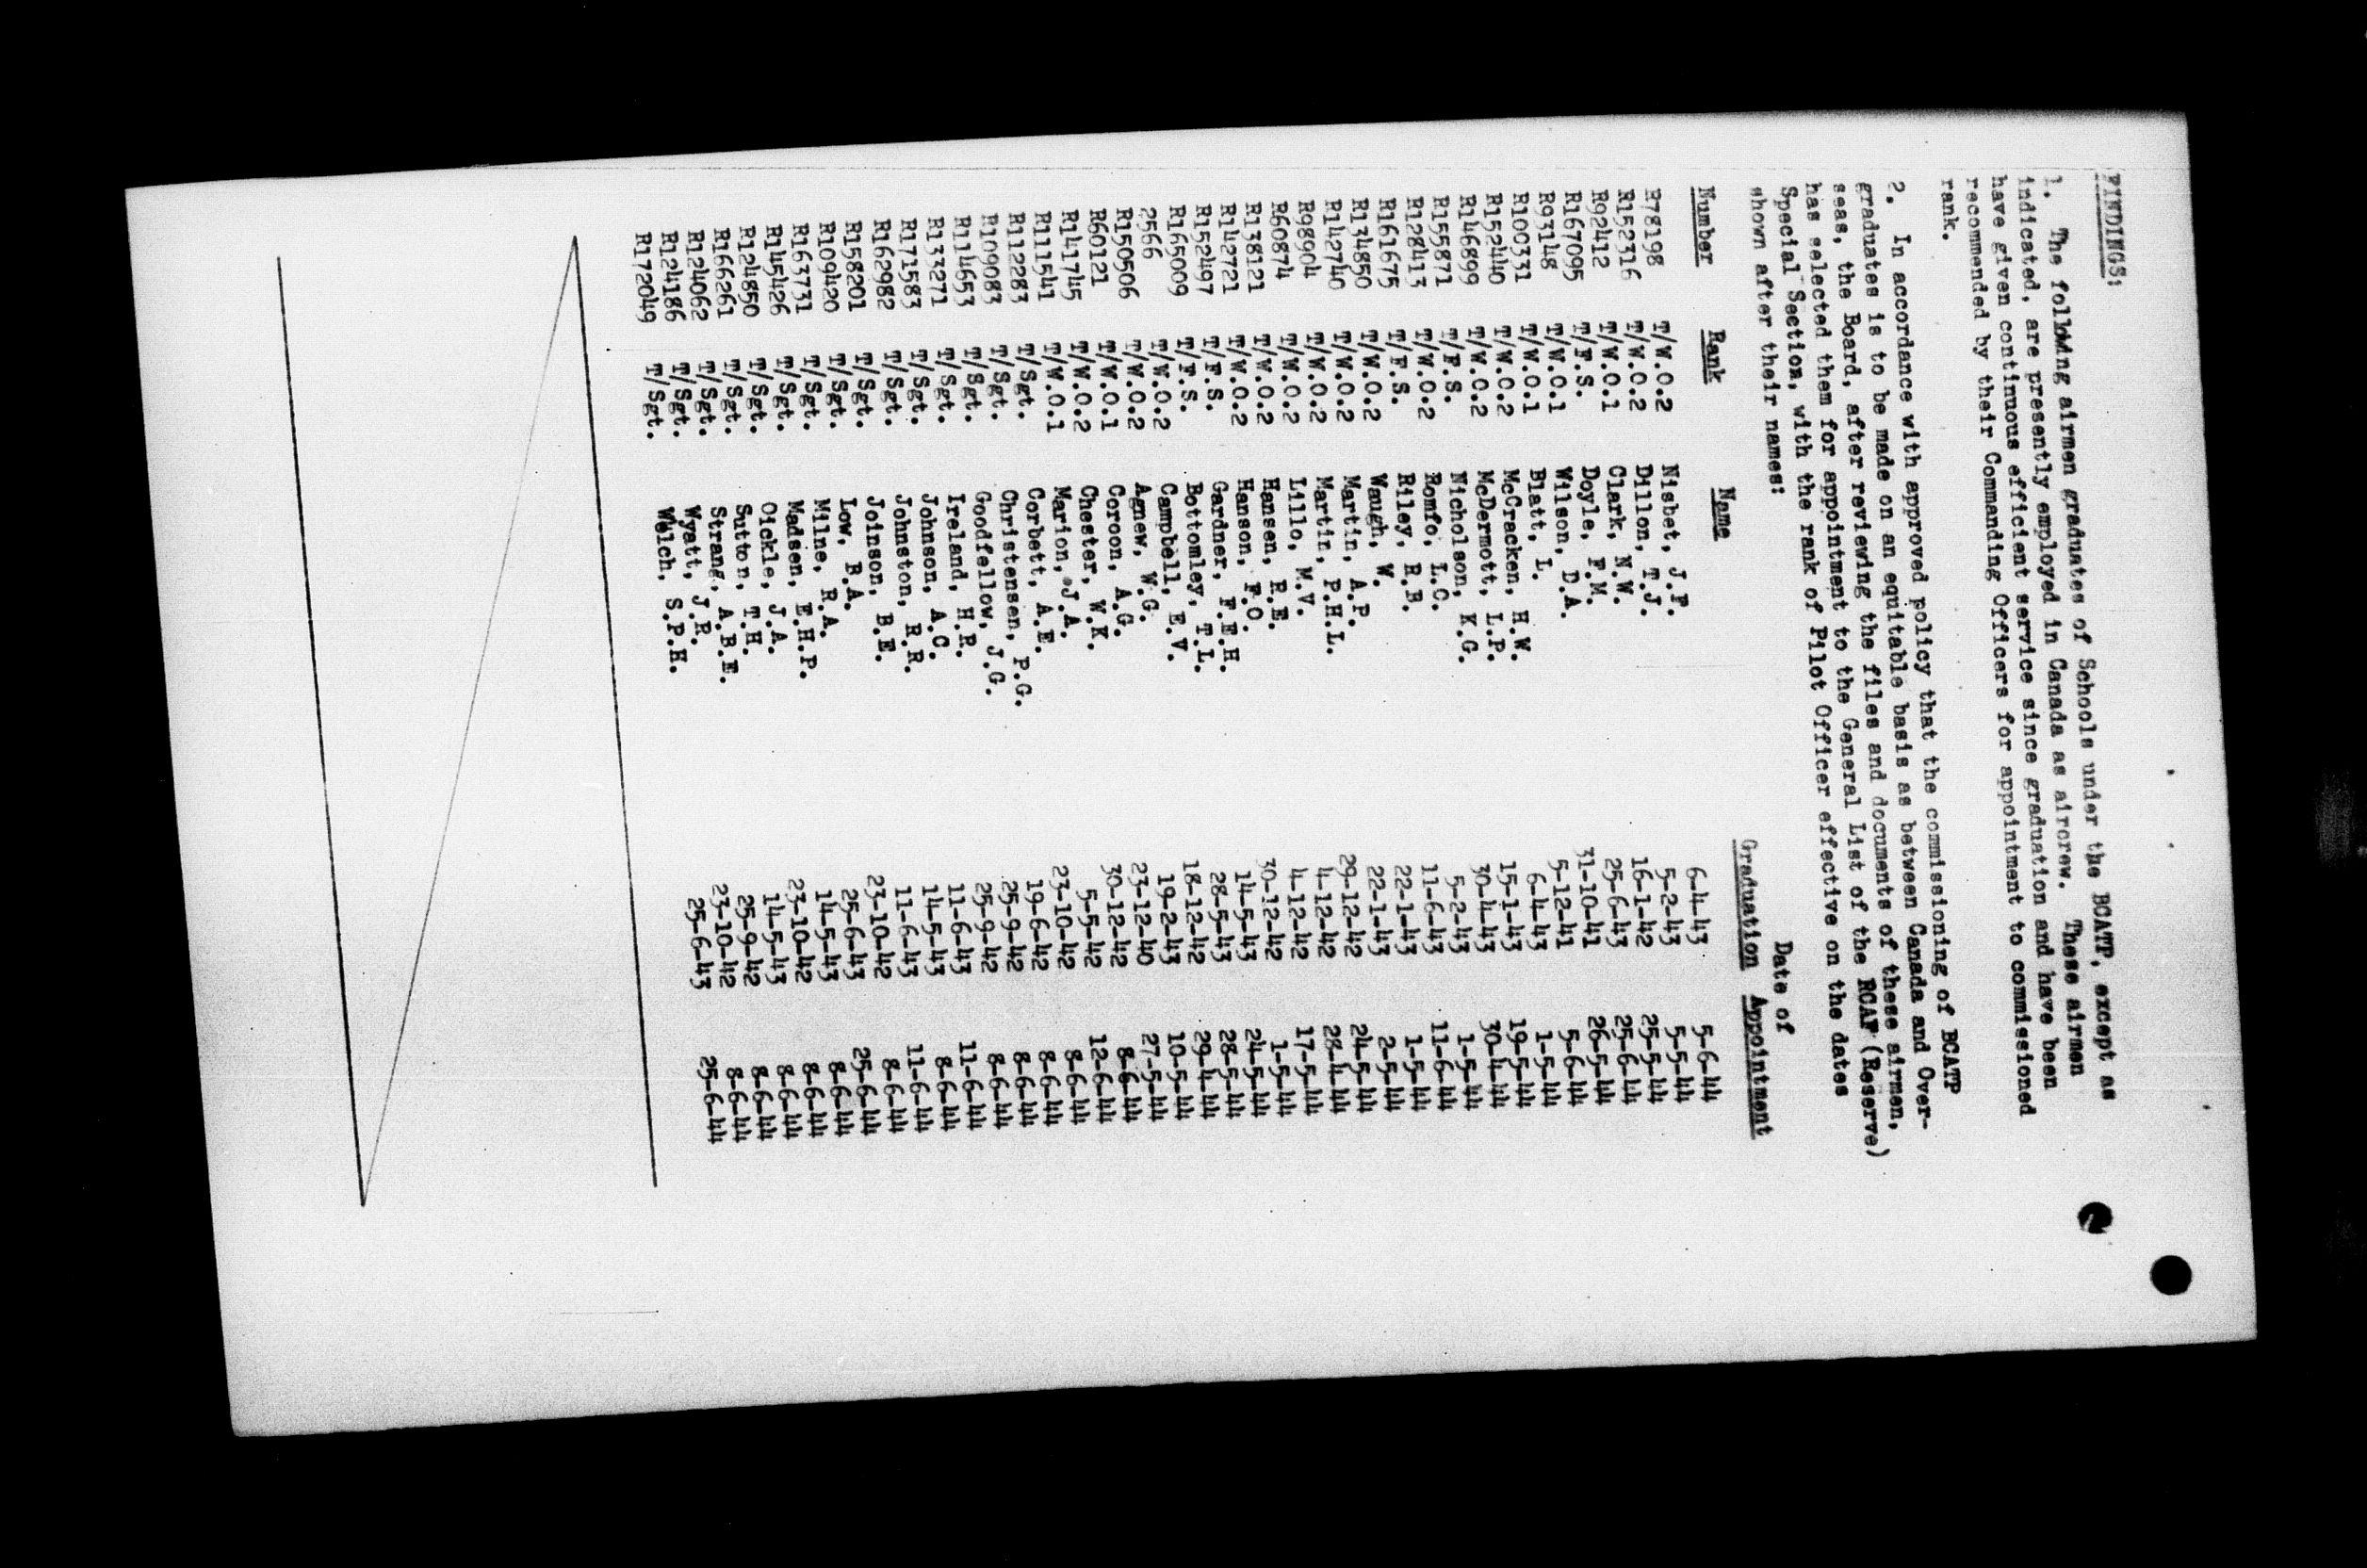 FINDINGS:
1. The following airmen graduates of Schools under the BCATP, except as
indicated, are presently employed in Canada as aircrew. These airmen
have given continuous efficient service since graduation and have been
recommended by their Commanding Officers for appointment to commissioned
rank.
2. In accordance with approved policy that the commissioning of BCATP
graduates is to be made on an equitable basis as between Canada and Over-
seas, the Board, after reviewing the files and documents of these airmen,
has selected them for appointment to the General List of the RCAF (Reserve)
Special Section, with the rank of Pilot Officer effective on the dates
shown after their names:
Date of
Number Rank Name Graduation Appointment
R78198 T/W.O.2 Nisbet, J.P. 6-4-43 5-6-44
R152316 T/W.O.2 Dillon, T.J. 5-2-43 5-5-44
R92412 T/W.O.1 Clark, N.W. 16-1-42 25-5-44
R167095 T/F.S. Doyle, F.M. 25-6-43 25-6-44
R93148 T/W.O.1 Wilson, D.A. 31-10-41 26-5-44
R100331 T/W.O.1 Blatt, L. 5-12-41 5-6-44
R152440 T/W.O.2 McCracken, H.W. 6-4-43 1-5-44
R146899 T/W.O.2 McDermott, L.P. 15-1-43 19-5-44
R155871 T/F.S. Nicholson, K.G. 30-4-43 30-4-44
R128413 T/W.O.2 Romfo, L.C. 5-2-43 1-5-44
R161675 T/F.S. Riley, R.B. 11-6-43 11-6-44
R134850 T/W.O.2 Waugh, W. 22-1-43 1-5-44
R142740 T/W.O.2 Martin, A.P. 22-1-43 2-5-44
R98904 T/W.O.2 Martin, P.H.L. 29-12-42 24-5-44
R60874 T/W.O.2 Lillo, M.V. 4-12-42 28-4-44
R138121 T/W.O.2 Hansen, R.E. 4-12-42 17-5-44
R142721 T/W.O.2 Hanson, F.O. 30-12-42 1-5-44
R152497 T/F.S. Gardner, F.E.H. 14-5-43 24-5-44
R165009 T/F.S. Bottomley, T.L. 28-5-43 28-5-44
2566 T/W.O.2 Campbell, E.V. 18-12-42 29-4-44
R150506 T/W.O.2 Agnew, W.G. 19-2-43 10-5-44
R60121 T/W.O.1 Coroon, A.G. 23-12-40 27-5-44
R141745 T/W.O.2 Chester, W.K. 30-12-42 8-6-44
R111541 T/W.O.1 Marion, J.A. 5-5-42 12-6-44
R112283 T/Sgt. Corbett, A.E. 23-10-42 8-6-44
R109083 T/Sgt. Christensen, P.G. 19-6-42 8-6-44
R114653 T/Sgt. Goodfellow, J.G. 25-9-42 8-6-44
R133271 T/Sgt. Ireland, H.R. 25-9-42 8-6-44
R171583 T/Sgt. Johnson, A.C. 11-6-43 11-6-44
R162982 T/Sgt. Johnston, R.R. 14-5-43 8-6-44
R158201 T/Sgt. Joinson, B.E. 11-6-43 11-6-44
R109420 T/Sgt. Low, B.A. 23-10-42 8-6-44
R163731 T/Sgt. Milne, R.A. 25-6-43 25-6-44
R145426 T/Sgt. Madsen, E.H.P. 14-5-43 8-6-44
R124850 T/Sgt. Oickle, J.A. 23-10-42 8-6-44
R166261 T/Sgt. Sutton, T.H. 14-5-43 8-6-44
R124062 T/Sgt. Strang, A.B.E. 25-9-42 8-6-44
R124186 T/Sgt. Wyatt, J.R. 23-10-42 8-6-44
R172049 T/Sgt. Welch, S.P.H. 25-6-43 25-6-44